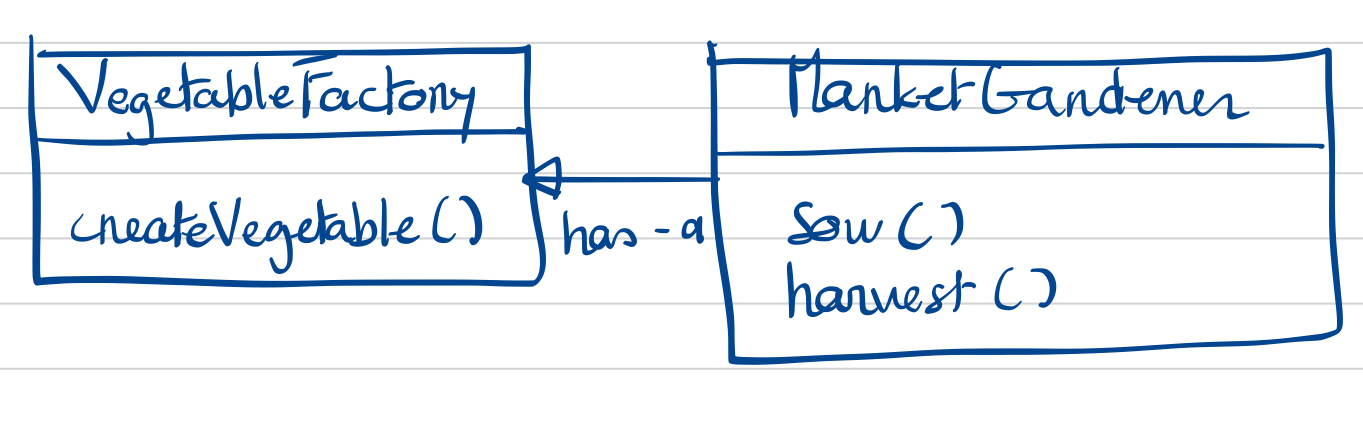 VegetableFactory
createVegetable()
has-a
MarketGardener
Sow()
harvest()